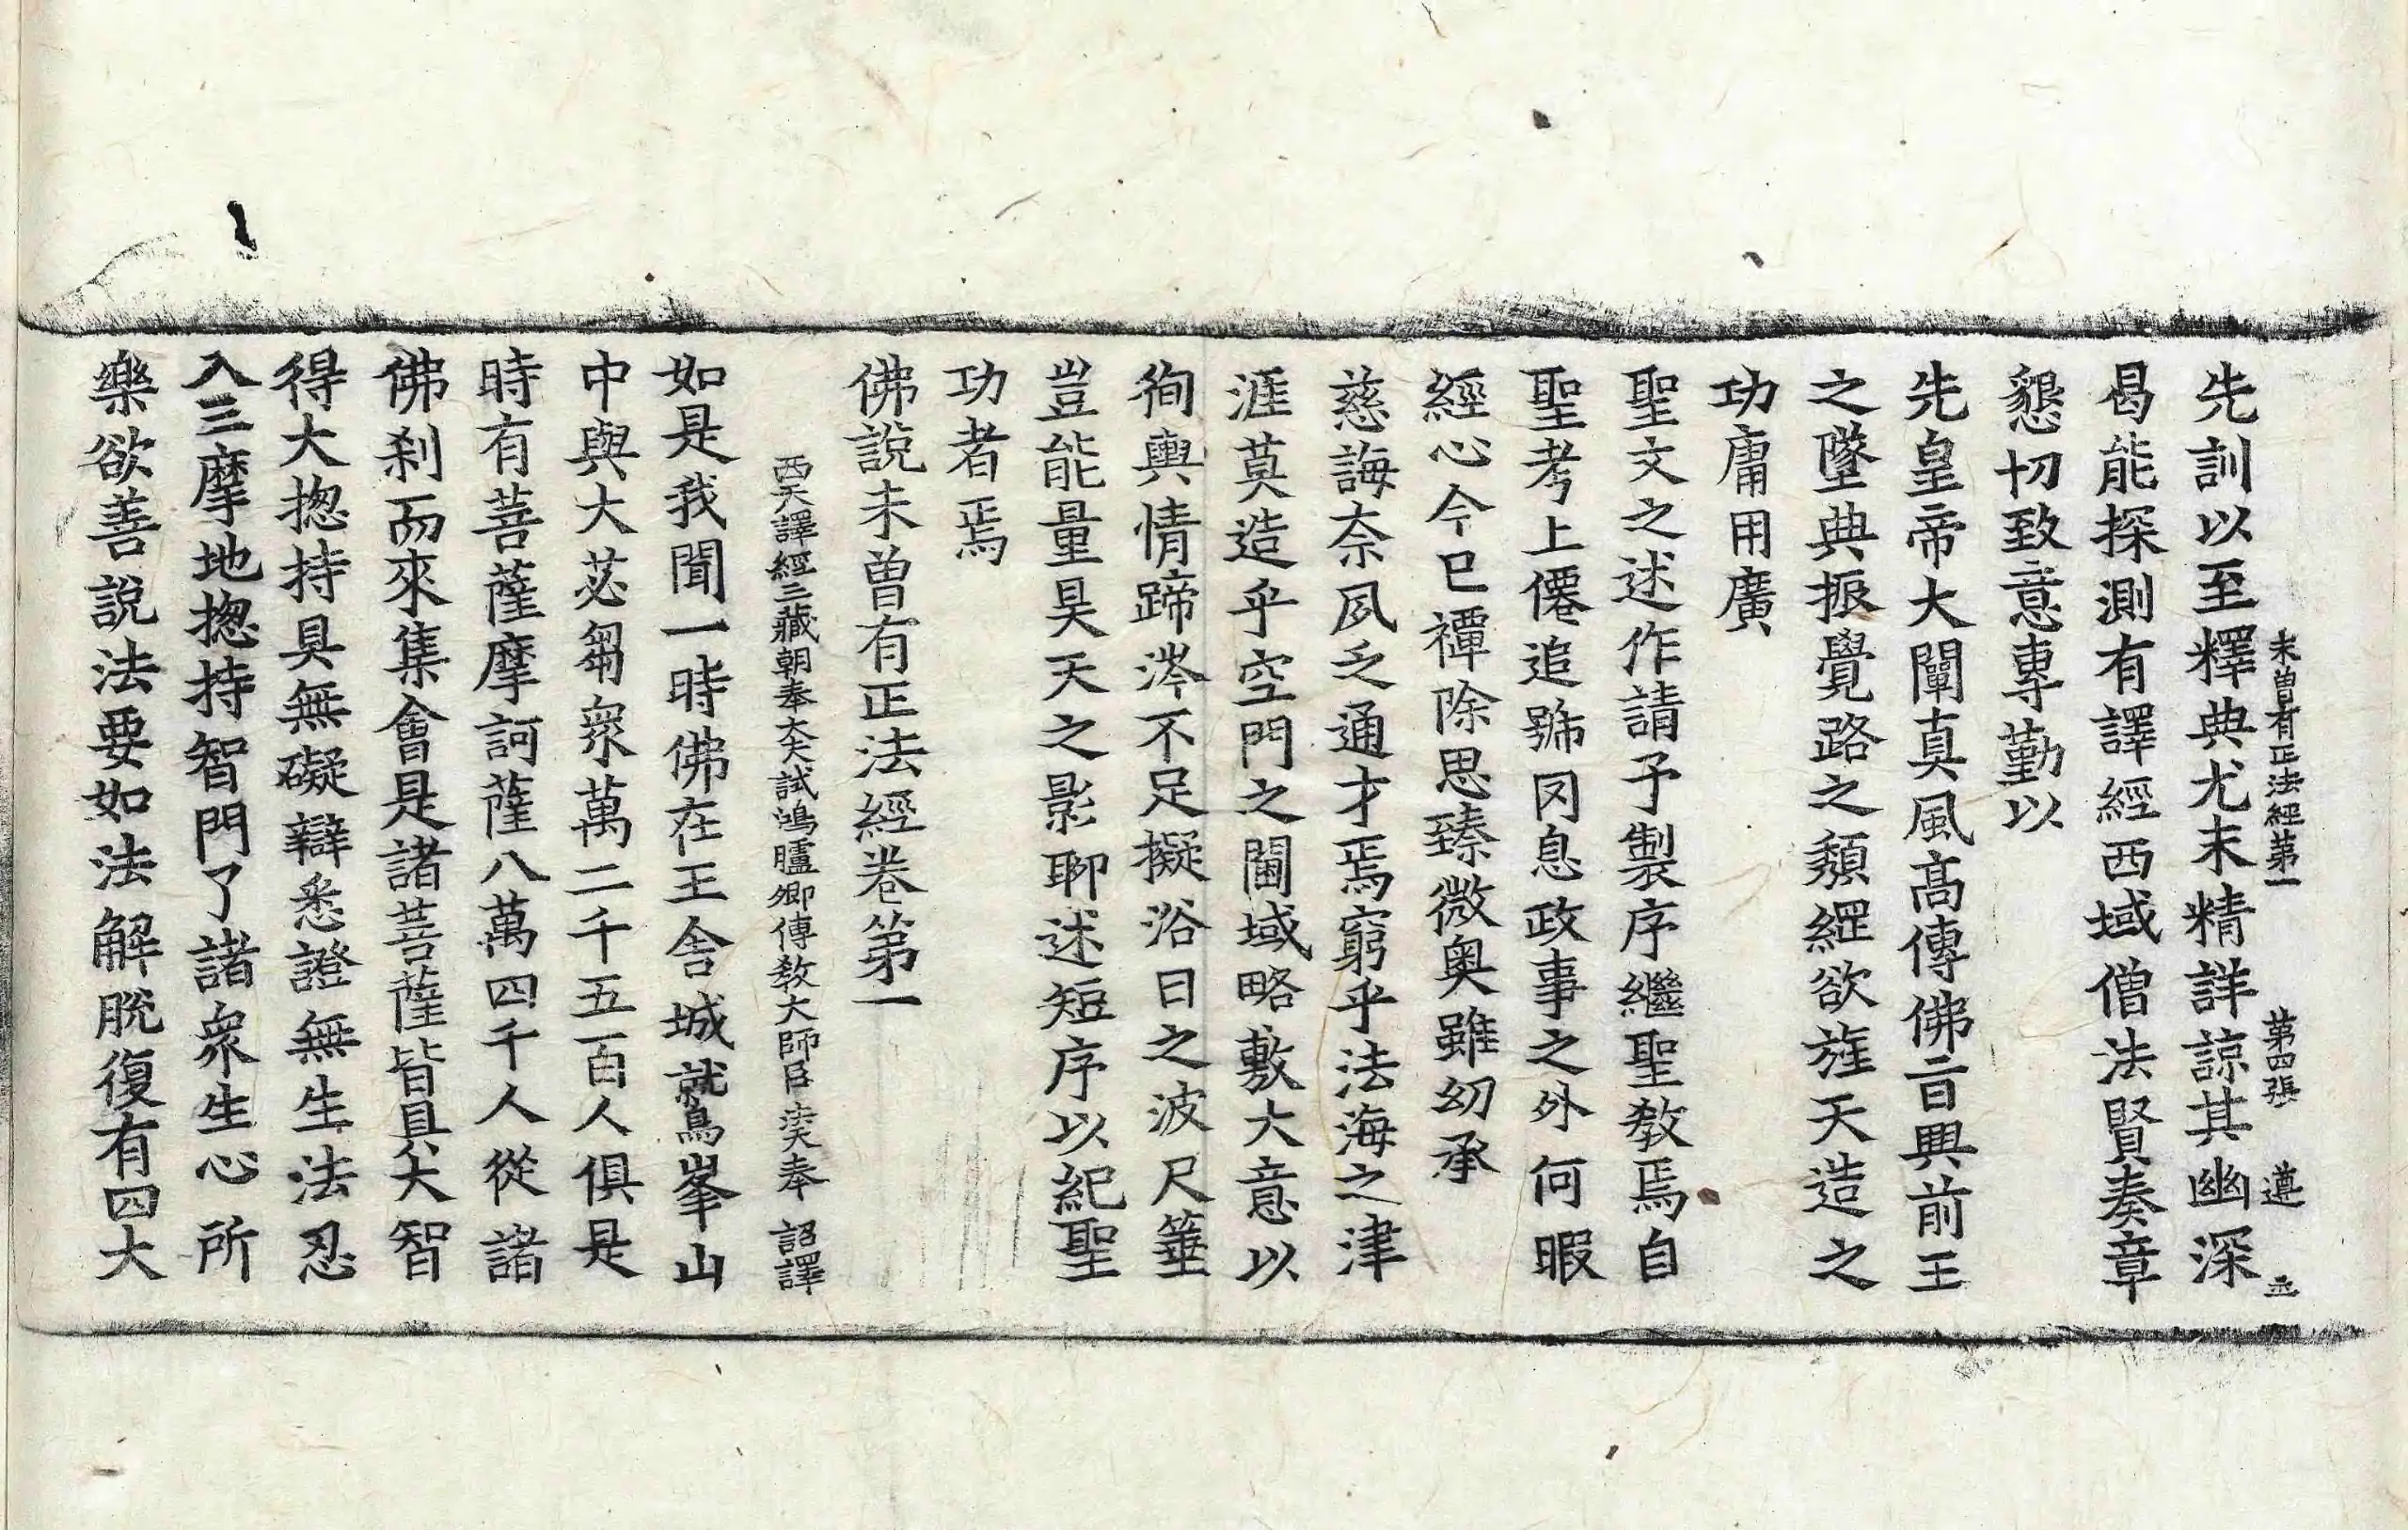 未曽有正法經第一 第四張 遵
先訓以至釋典尤未精詳諒其幽深
曷能探測有譯經西域僧法賢奏章
懇切致意專勤以
先皇帝大闡真風髙傳佛旨興前王
之墜典振覺路之頹綱欲旌天造之
功庸用廣
聖文之述作請予製序繼聖教焉自
聖考上僊追號罔息政事之外何暇
經心今已禫除思臻微奥雖幼承
慈誨柰夙乏通才焉窮乎法海之津
涯莫造乎空門之閫域略敷大意以
徇輿情蹄涔不足擬浴日之波尺箠
豈能量昊天之影聊述短序以紀聖
功者焉
佛說未曽有正法經卷第一
西天譯經三藏朝奉大夫試鴻臚卿傳教大師臣法天奉 詔譯
如是我聞一時佛在王舍城鷲峯山
中與大苾芻衆萬二千五百人俱是
時有菩薩摩訶薩八萬四千人從諸
佛刹而來集會是諸菩薩皆具大智
得大揔持具無礙辯悉證無生法忍
入三摩地揔持智門了諸衆生心所
樂欲善說法要如法解脫復有四大